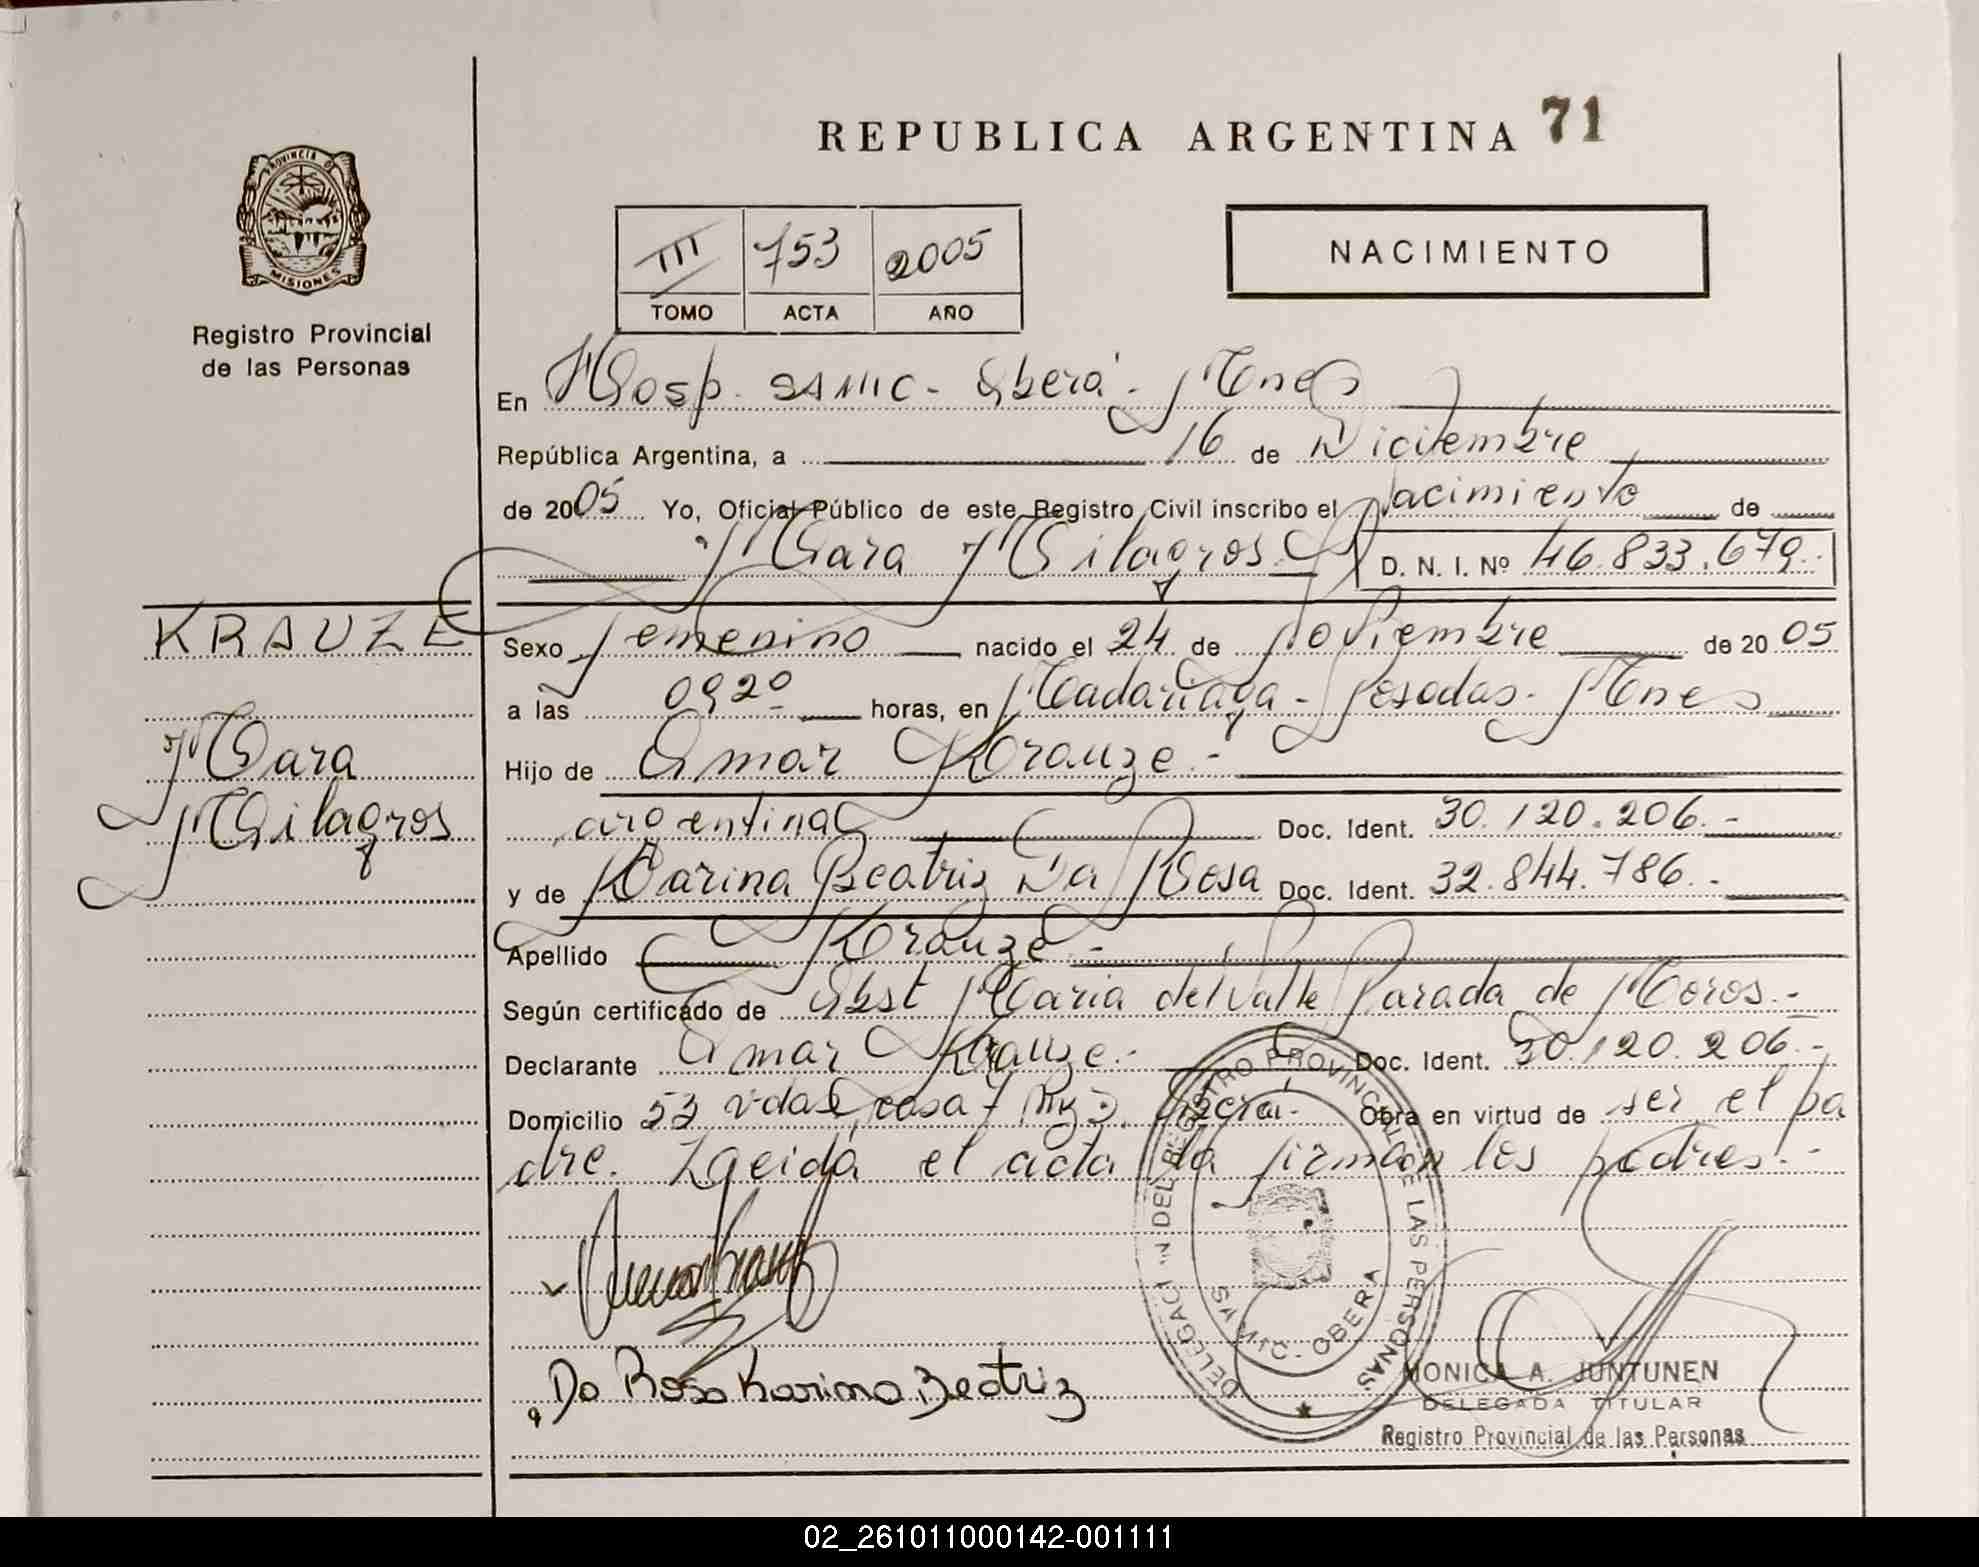 REPUBLICA ARGENTINA 71
PROVINCIA DE
MISIONES
Registro Provincial
de las Personas
III 753 2005
TOMO ACTA AÑO
NACIMIENTO
En Hosp. SAMIC - Oberá - Mnes
República Argentina, a 16 de Diciembre
de 2005 Yo, Oficial Público de este Registro Civil inscribo el Nacimiento de
Mara Milagros D. N. I. Nº 46.833.679.
KRAUZE
Mara
Milagros
Sexo femenino nacido el 24 de Noviembre de 2005
a las 0920 horas, en Madariaga - Posadas - Mnes
Hijo de Omar Krauze.-
argentina Doc. Ident. 30.120.206.-
y de Karina Beatriz Da Rosa Doc. Ident. 32.844.786.-
Apellido Krauze.-
Según certificado de Obst Maria del Valle Parada de Moros.-
Declarante Omar Krauze.- Doc. Ident. 30.120.206.-
Domicilio 53 vdas casa 7 Oberá.- Obra en virtud de ser el pa
dre. Leida el acta la firman los padres.-
DELEGACIÓN DEL REGISTRO PROVINCIAL DE LAS PERSONAS
OBERA
Da Rosa Karina Beatriz
MONICA A. JUNTUNEN
DELEGADA TITULAR
Registro Provincial de las Personas
02_261011000142-001111